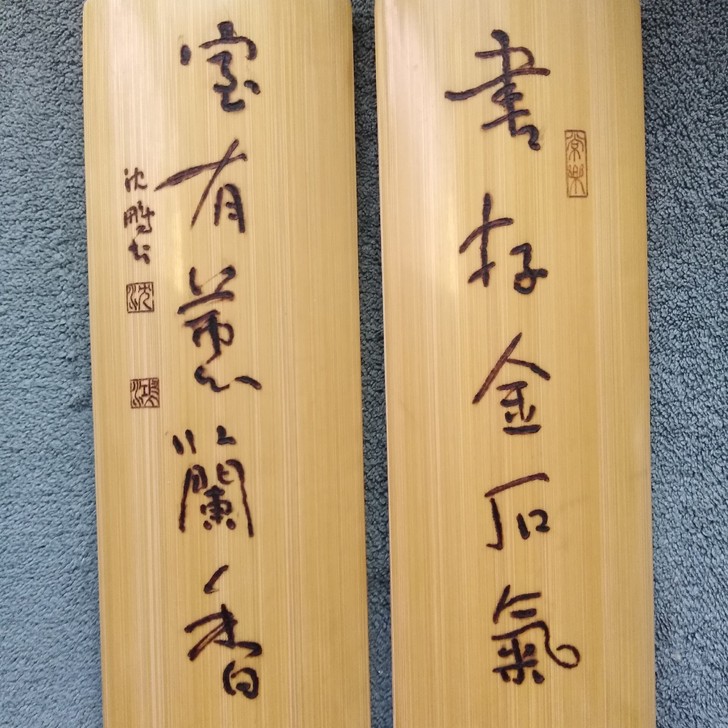 書存金石氣
室有蕙蘭香
沈鵬书